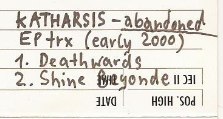 KATHARSIS - abandoned
EP trx (early 2000)
1. Deathwards
2. Shine Beyonde
DATE
IEC II
POS. HIGH